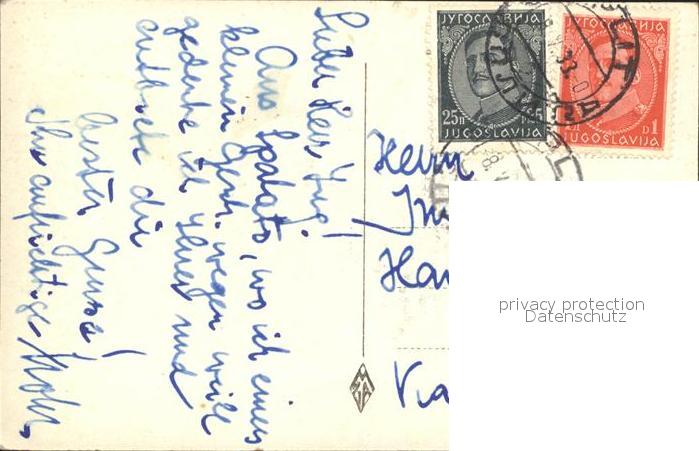 Lieber Herr Ing!
Aus Spalato, wo ich eines
kleinen Gesch. wegen weile
gedenke ich Ihrer und
entbiete die
besten Grüsse!
Ihr aufrichtiger
ЈУГОСЛАВИЈА
25П P25
JUGOSLAVIJA
ЈУГОСЛАВИЈА
D1
JUGOSLAVIJA
SPLIT
33
Herrn
Ha
Via
MGA
privacy protection
Datenschutz